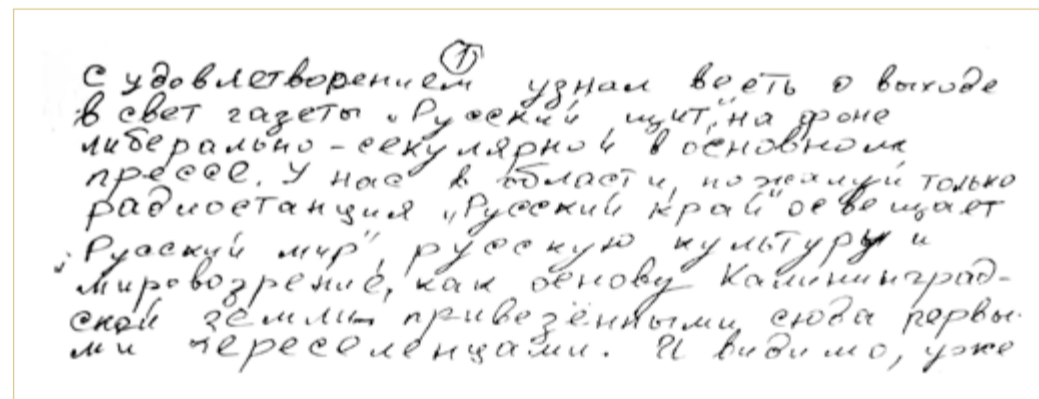 1
С удовлетворением узнал весть о выходе
в свет газеты „Русский щит", на фоне
либерально-секулярной в основном
прессе. У нас в области, пожалуй только
радиостанция „Русский край" освещает
„Русский мир", русскую культуру и
мировозрение, как основу Калининград-
ской земли привезёнными сюда первы-
ми переселенцами. И видимо, уже